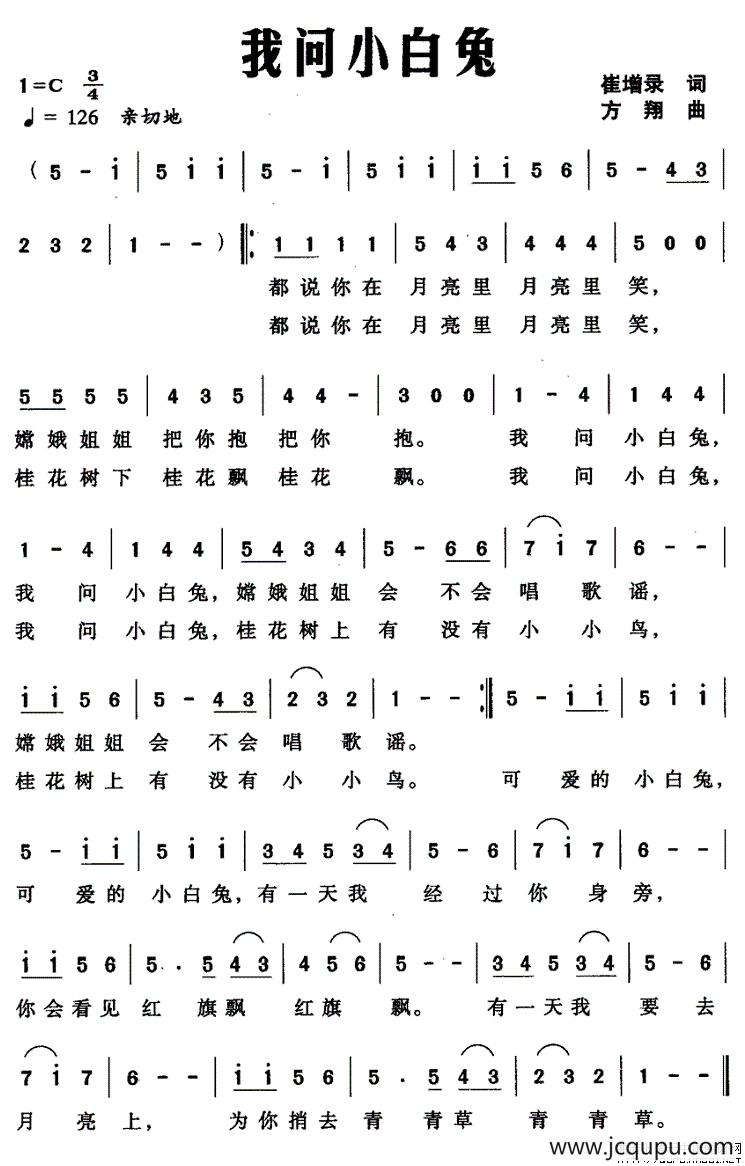 我问小白兔
1=C 3/4
崔增录 词
♩= 126 亲切地
方翔 曲
( 5 - i | 5 i i | 5 - i | 5 i i | i i 5 6 | 5 - 4 3 |
2 3 2 | 1 - - ) ‖: 1 1 1 1 | 5 4 3 | 4 4 4 | 5 0 0 |
都说你在 月亮里 月亮里 笑,
都说你在 月亮里 月亮里 笑,
5 5 5 5 | 4 3 5 | 4 4 - | 3 0 0 | 1 - 4 | 1 4 4 |
嫦娥姐姐 把你抱 把你 抱。 我 问 小白兔,
桂花树下 桂花飘 桂花 飘。 我 问 小白兔,
1 - 4 | 1 4 4 | 5 4 3 4 | 5 - 6 6 | 7 i 7 | 6 - - |
我 问 小白兔, 嫦娥姐姐 会 不会 唱 歌 谣,
我 问 小白兔, 桂花树上 有 没有 小 小 鸟,
i i 5 6 | 5 - 4 3 | 2 3 2 | 1 - - :‖ 5 - i i | 5 i i |
嫦娥姐姐 会 不会 唱 歌 谣。
桂花树上 有 没有 小 小 鸟。 可 爱的 小白兔,
5 - i i | 5 i i | 3 4 5 3 4 | 5 - 6 | 7 i 7 | 6 - - |
可 爱的 小白兔, 有一天我 经 过 你 身 旁,
i i 5 6 | 5 . 5 4 3 | 4 5 6 | 5 - - | 3 4 5 3 4 | 5 - 6 |
你会看见 红 旗飘 红旗 飘。 有一天我 要 去
7 i 7 | 6 - - | i i 5 6 | 5 . 5 4 3 | 2 3 2 | 1 - - ‖
月 亮 上, 为你捎去 青 青草 青 青 草。
www.jcqupu.com